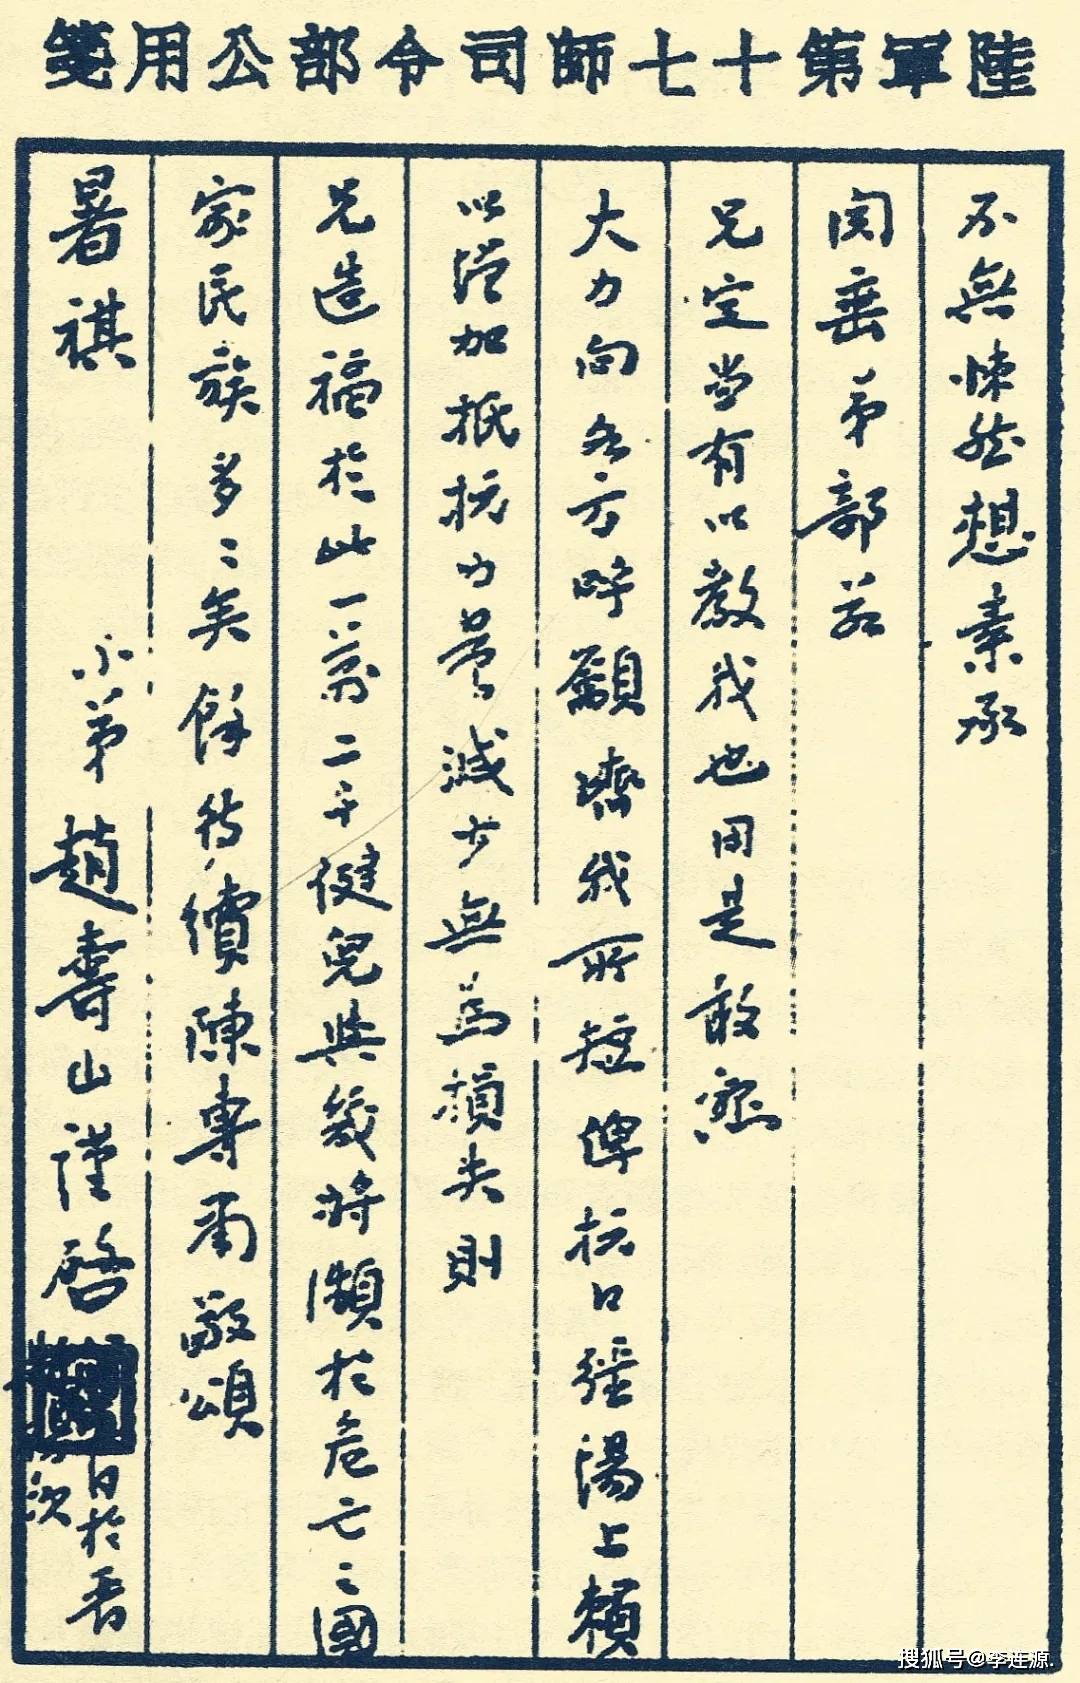 陸軍第十七師司令部公用箋
不無悚然想素承
関垂弟部若
兄定當有以教我也用是敢懇
大力向各方呼籲濟我所短俾抗日疆場上賴
以增加抵抗力量減少無為損失則
兄造福於此一萬二千健兒與幾將瀕於危亡之國
家民族多多矣餘待續陳專肅敬頌
暑祺
小弟趙壽山謹啓
日於晋
次
搜狐号@李连源.